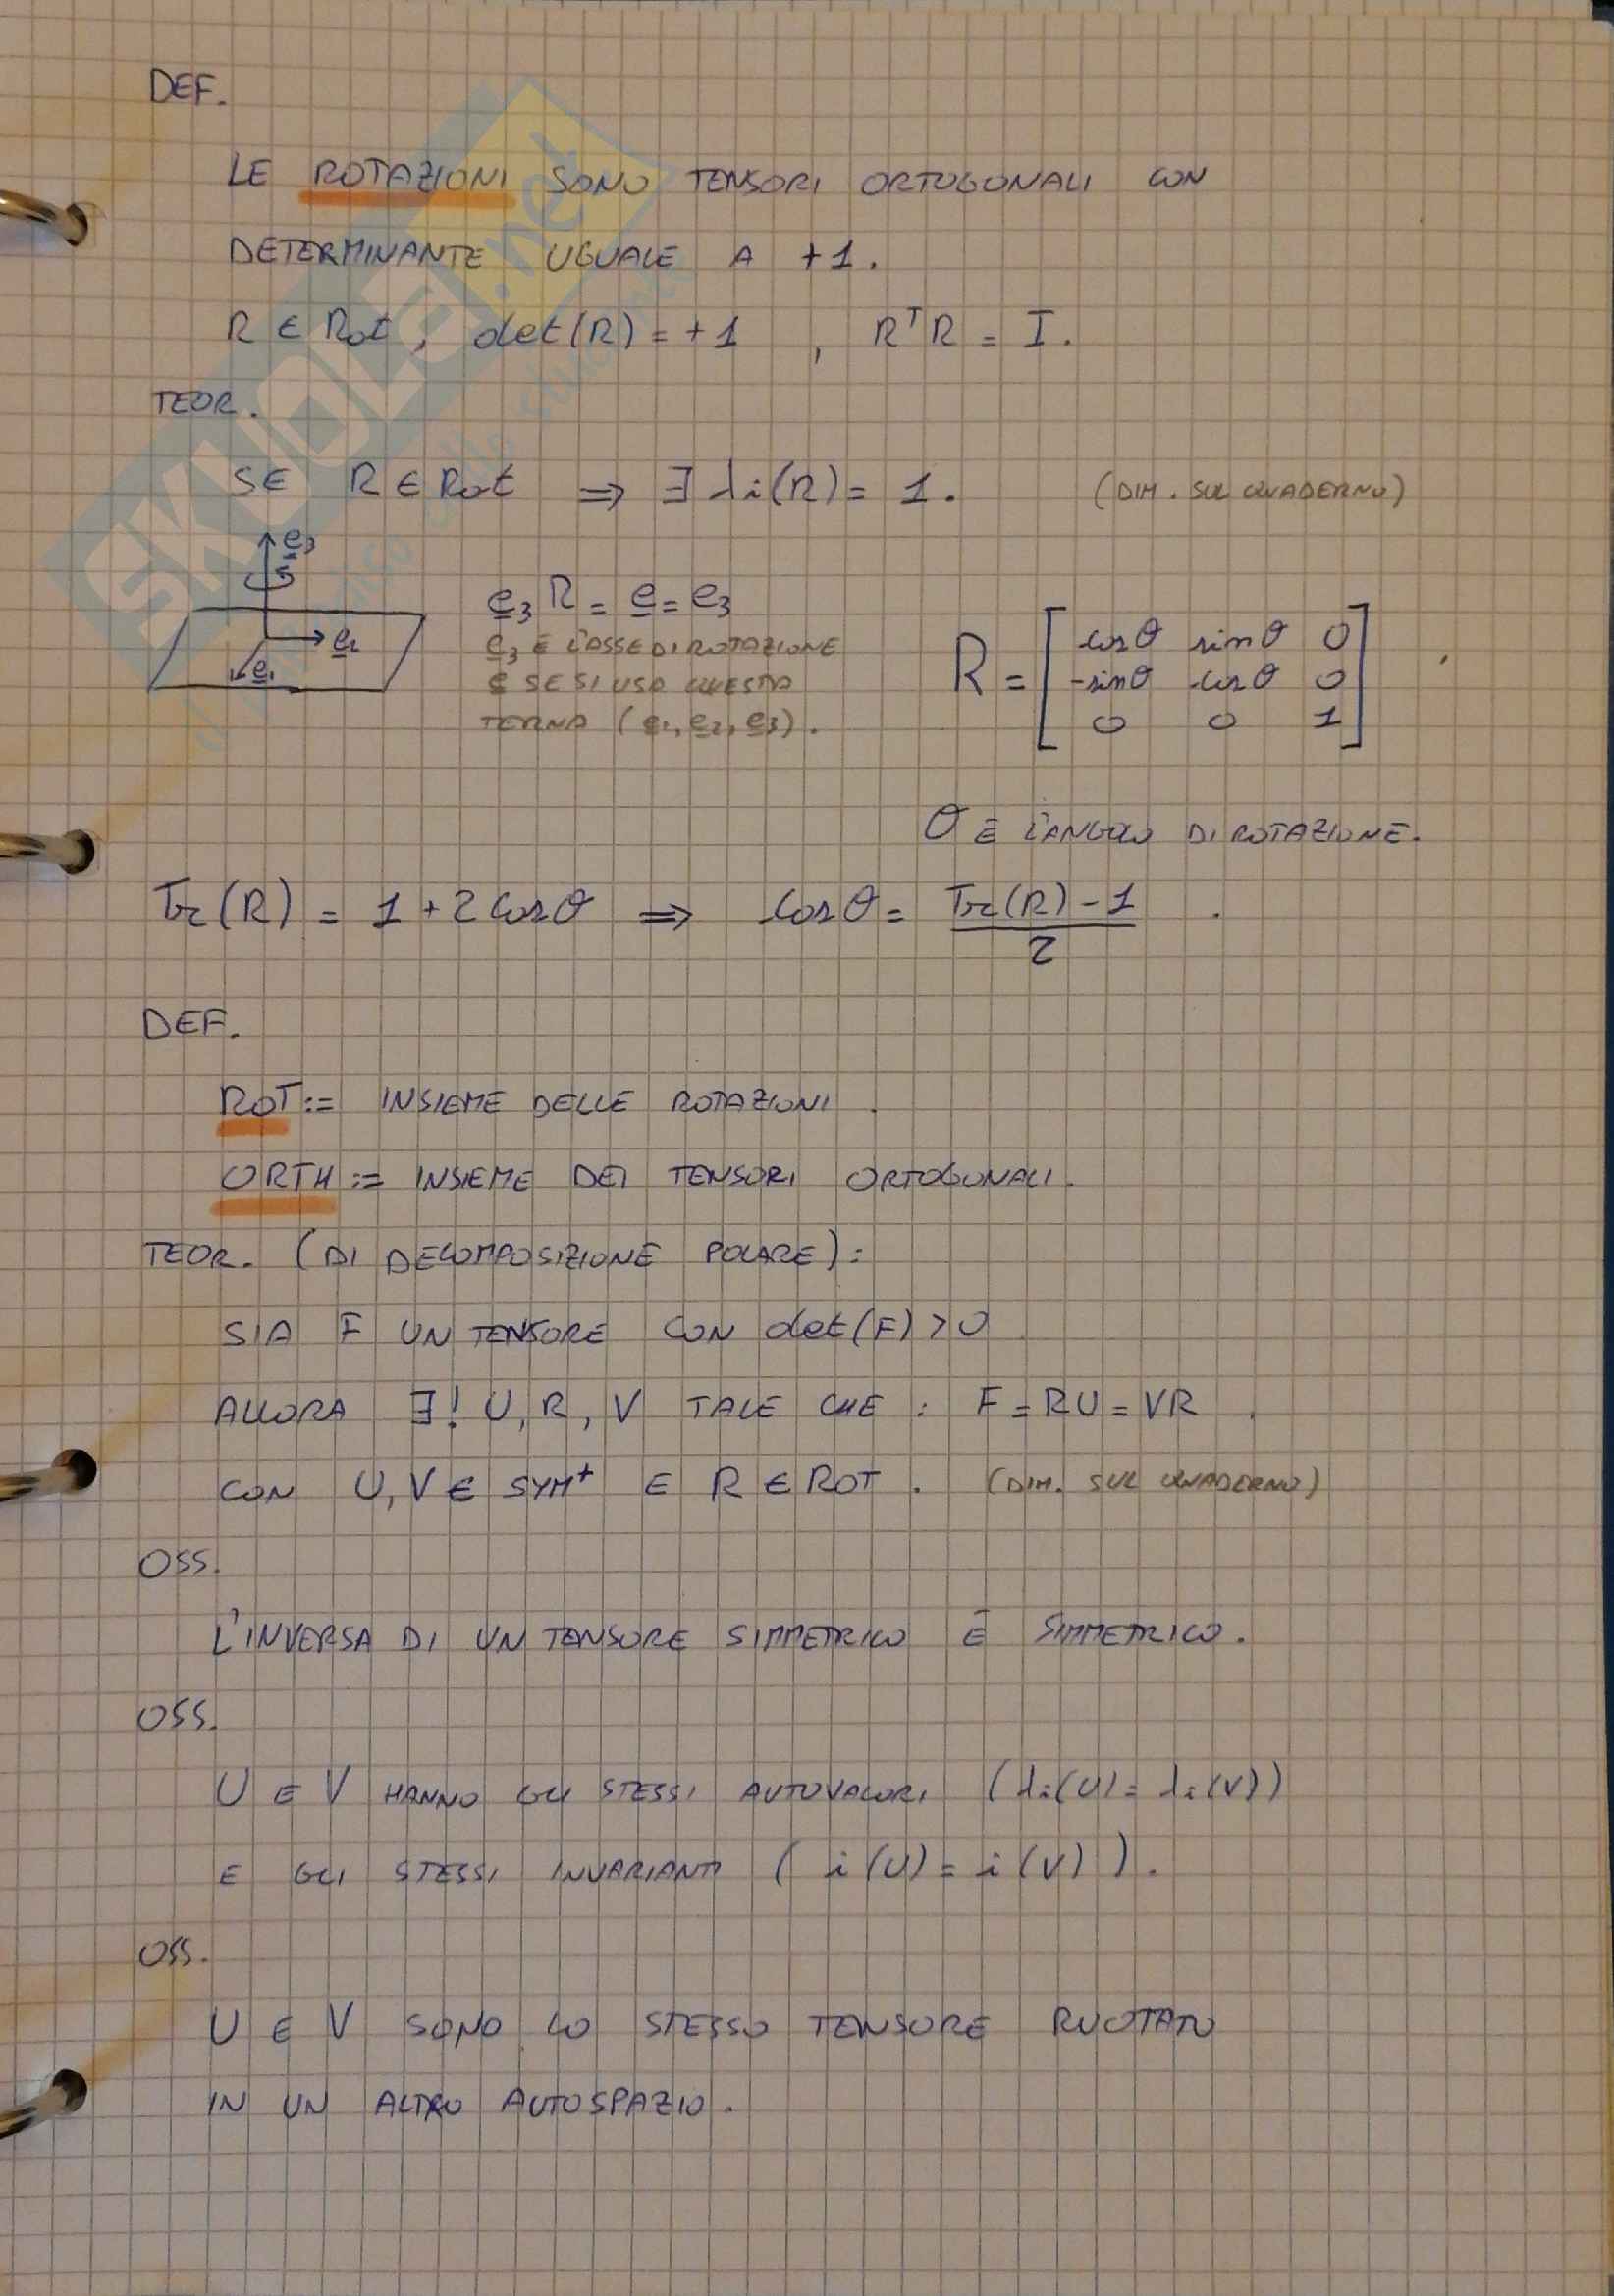 DEF.
LE ROTAZIONI SONO TENSORI ORTOGONALI CON
DETERMINANTE UGUALE A +1.
R ∈ Rot, det(R) = +1 , RᵀR = I.
TEOR.
SE R ∈ Rot ⇒ ∃ λi(R) = 1. (DIM. SUL QUADERNO)
e3
e2
e1
e3 R = e = e3
e3 È L'ASSE DI ROTAZIONE
SE SI USA QUESTA
TERNA (e1, e2, e3).
R = [ cosθ sinθ 0
-sinθ cosθ 0
0 0 1 ]
θ È L'ANGOLO DI ROTAZIONE.
Tr(R) = 1 + 2 cosθ ⇒ cosθ = (Tr(R) - 1) / 2 .
DEF.
ROT := INSIEME DELLE ROTAZIONI.
ORTH := INSIEME DEI TENSORI ORTOGONALI.
TEOR. (DI DECOMPOSIZIONE POLARE):
SIA F UN TENSORE CON det(F) > 0
ALLORA ∃! U, R, V TALE CHE : F = RU = VR .
CON U, V ∈ SYM⁺ E R ∈ ROT . (DIM. SUL QUADERNO)
OSS.
L'INVERSA DI UN TENSORE SIMMETRICO È SIMMETRICO.
OSS.
U E V HANNO GLI STESSI AUTOVALORI (λi(U) = λi(V))
E GLI STESSI INVARIANTI ( i(U) = i(V) ).
OSS.
U E V SONO LO STESSO TENSORE RUOTATO
IN UN ALTRO AUTOSPAZIO.
SKUOLA.net